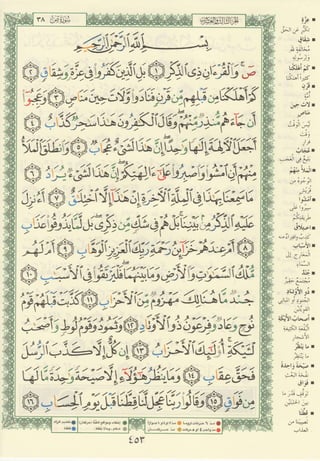 الجزء الثالث والعشرون
سورة ص ٣٨
بِسْمِ اللَّهِ الرَّحْمَٰنِ الرَّحِيمِ
صٓ ۚ وَالْقُرْآنِ ذِي الذِّكْرِ ١ بَلِ الَّذِينَ كَفَرُوا فِي عِزَّةٍ وَشِقَاقٍ ٢
كَمْ أَهْلَكْنَا مِن قَبْلِهِم مِّن قَرْنٍ فَنَادَوا وَّلَاتَ حِينَ مَنَاصٍ ٣ وَعَجِبُوا
أَن جَاءَهُم مُّنذِرٌ مِّنْهُمْ ۖ وَقَالَ الْكَافِرُونَ هَٰذَا سَاحِرٌ كَذَّابٌ ٤
أَجَعَلَ الْآلِهَةَ إِلَٰهًا وَاحِدًا ۖ إِنَّ هَٰذَا لَشَيْءٌ عُجَابٌ ٥ وَانطَلَقَ الْمَلَأُ
مِنْهُمْ أَنِ امْشُوا وَاصْبِرُوا عَلَىٰ آلِهَتِكُمْ ۖ إِنَّ هَٰذَا لَشَيْءٌ يُرَادُ ٦
مَا سَمِعْنَا بِهَٰذَا فِي الْمِلَّةِ الْآخِرَةِ إِنْ هَٰذَا إِلَّا اخْتِلَاقٌ ٧ أَءُنزِلَ
عَلَيْهِ الذِّكْرُ مِن بَيْنِنَا ۚ بَلْ هُمْ فِي شَكٍّ مِّن ذِكْرِي ۖ بَل لَّمَّا يَذُوقُوا عَذَابِ
٨ أَمْ عِندَهُمْ خَزَائِنُ رَحْمَةِ رَبِّكَ الْعَزِيزِ الْوَهَّابِ ٩ أَمْ لَهُم
مُّلْكُ السَّمَاوَاتِ وَالْأَرْضِ وَمَا بَيْنَهُمَا ۖ فَلْيَرْتَقُوا فِي الْأَسْبَابِ ١٠
جُندٌ مَّا هُنَالِكَ مَهْزُومٌ مِّنَ الْأَحْزَابِ ١١ كَذَّبَتْ قَبْلَهُمْ قَوْمُ
نُوحٍ وَعَادٌ وَفِرْعَوْنُ ذُو الْأَوْتَادِ ١٢ وَثَمُودُ وَقَوْمُ لُوطٍ وَأَصْحَابُ
لْـَٔيْكَةِ ۚ أُولَٰئِكَ الْأَحْزَابُ ١٣ إِن كُلٌّ إِلَّا كَذَّبَ الرُّسُلَ
فَحَقَّ عِقَابِ ١٤ وَمَا يَنظُرُ هَٰؤُلَاءِ إِلَّا صَيْحَةً وَاحِدَةً مَّا لَهَا
مِن فَوَاقٍ ١٥ وَقَالُوا رَبَّنَا عَجِّل لَّنَا قِطَّنَا قَبْلَ يَوْمِ الْحِسَابِ ١٦
٤٥٣